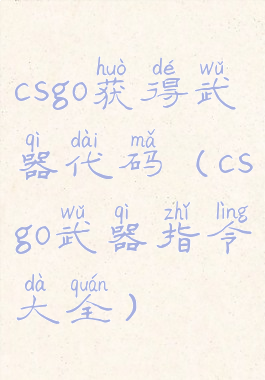 huò dé wǔ
csgo获得武
qì dài mǎ
器代码（cs
wǔ qì zhǐ lìng
go武器指令
dà quán
大全）